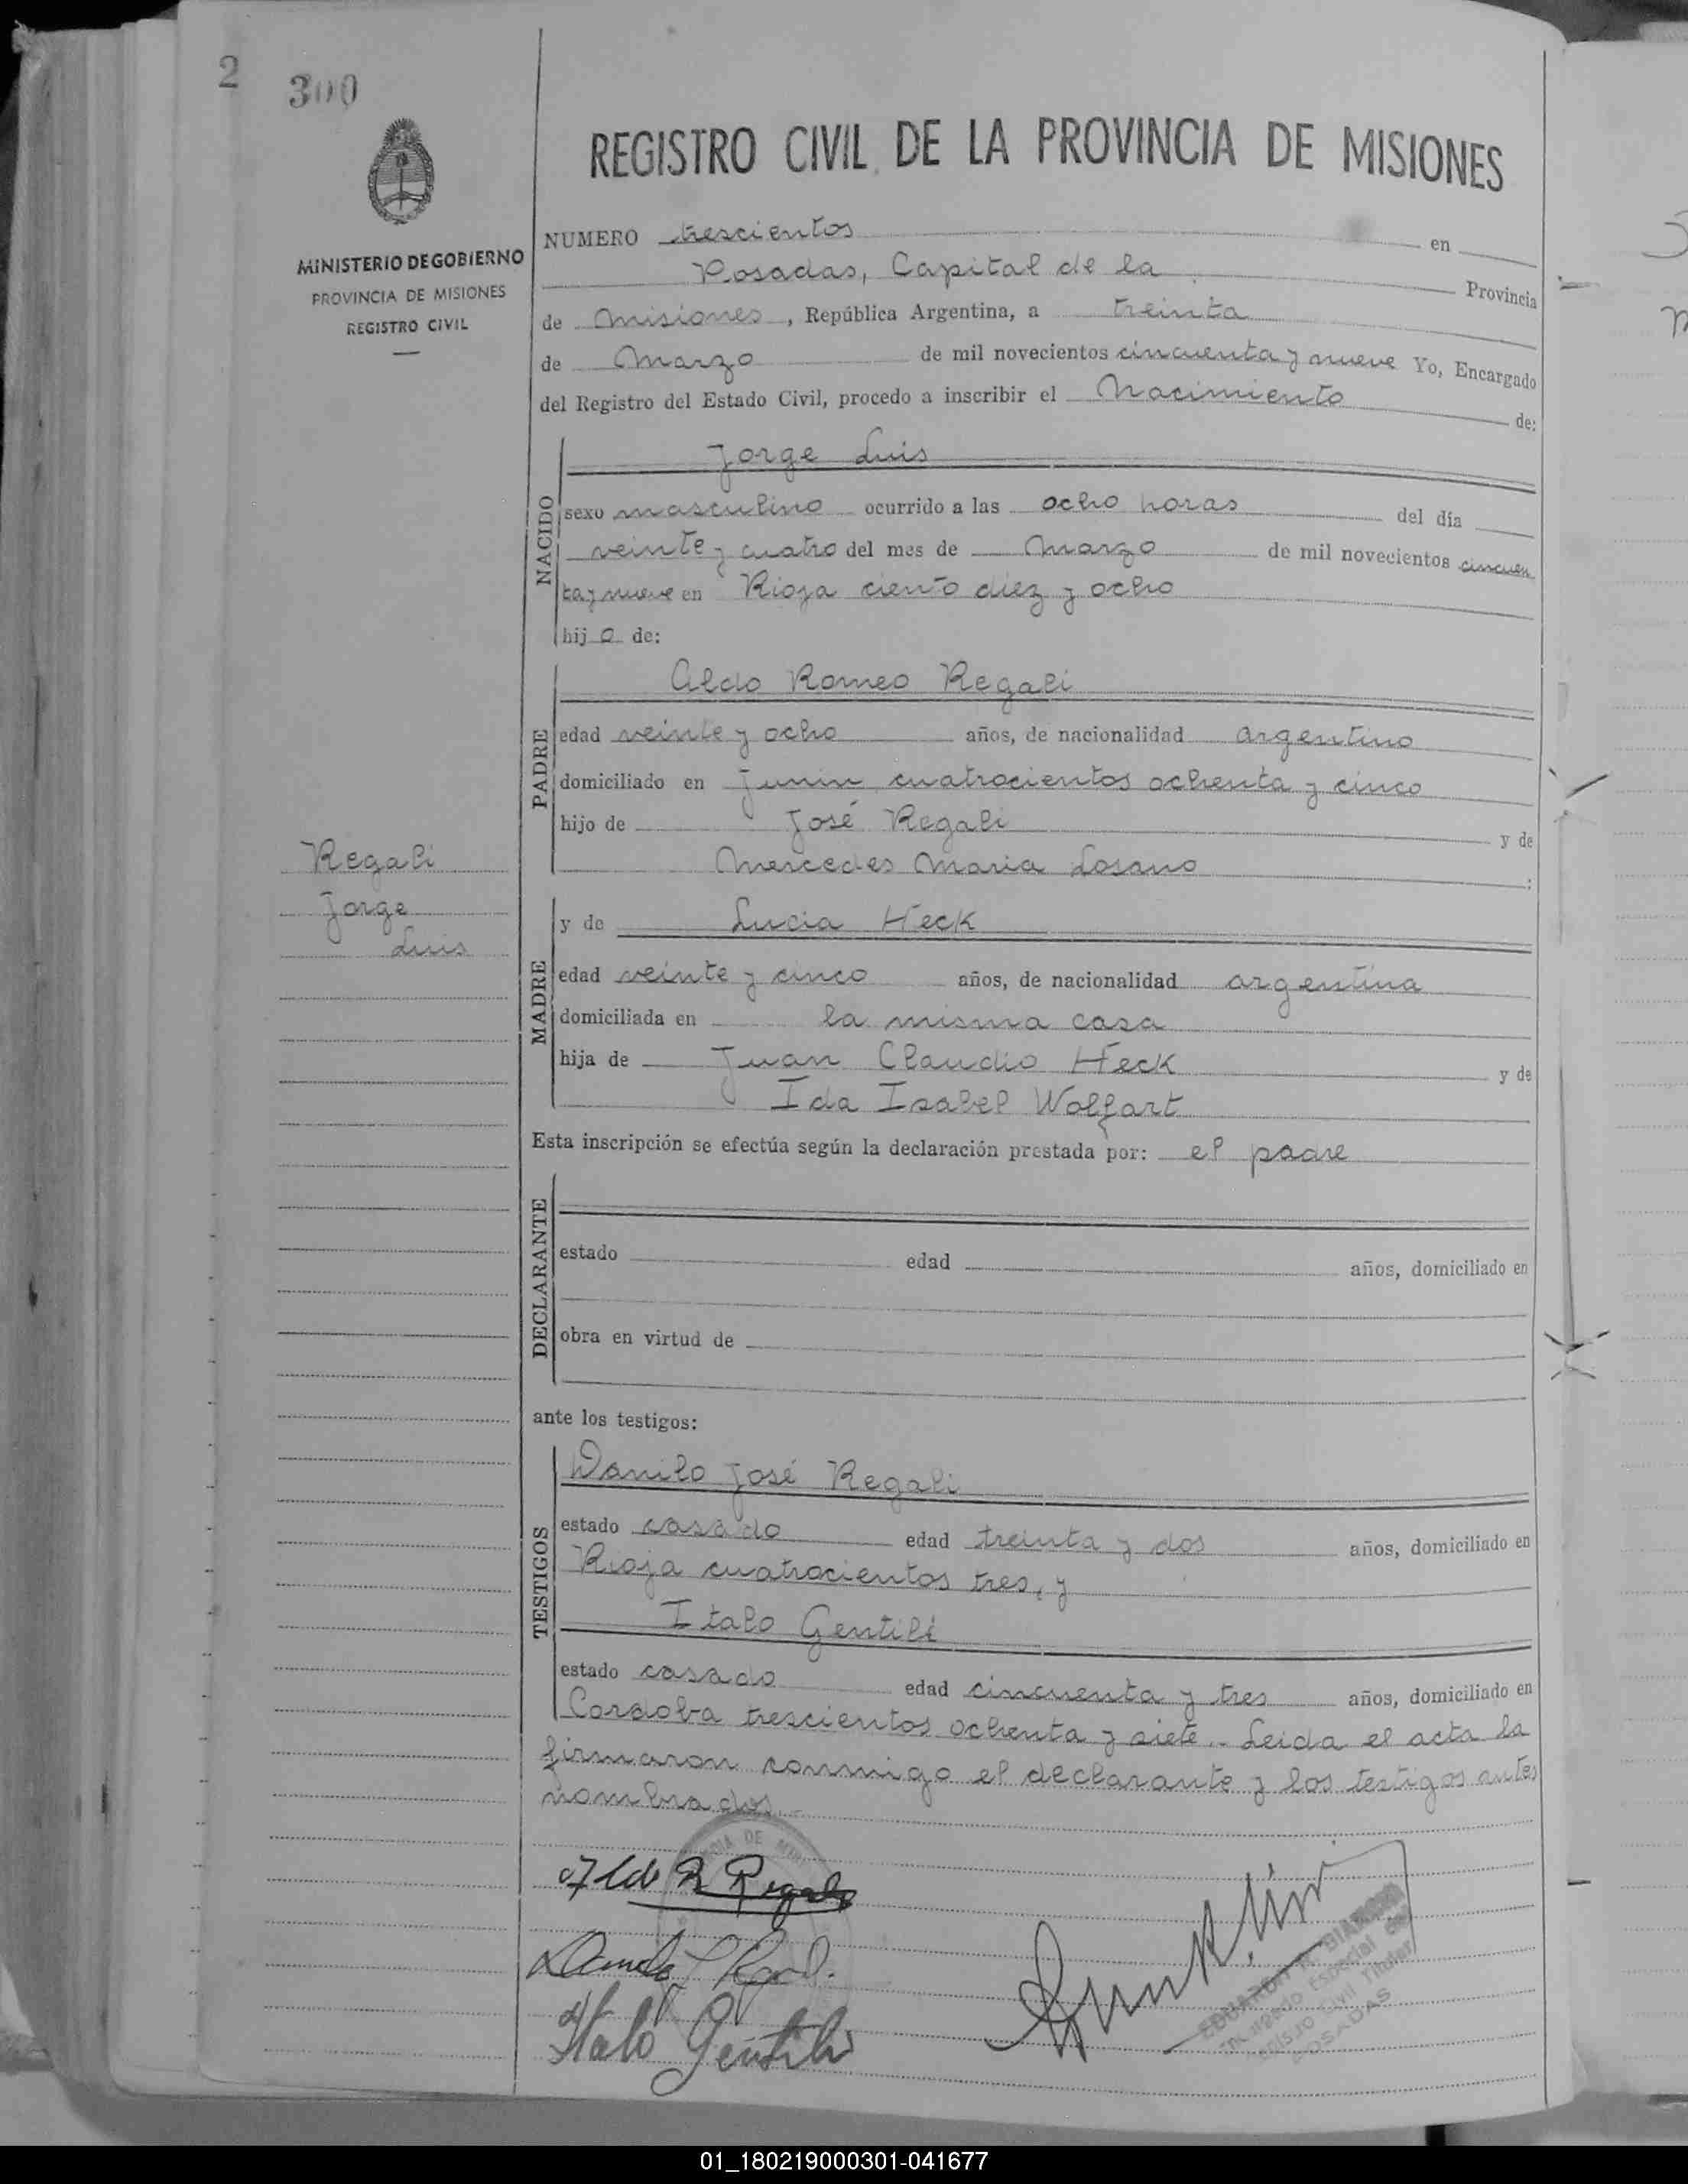 2
300
REGISTRO CIVIL DE LA PROVINCIA DE MISIONES
MINISTERIO DE GOBIERNO
PROVINCIA DE MISIONES
REGISTRO CIVIL
NUMERO trescientos en
Posadas, Capital de la Provincia
de Misiones, República Argentina, a treinta
de Marzo de mil novecientos cincuenta y nueve Yo, Encargado
del Registro del Estado Civil, procedo a inscribir el Nacimiento de:
NACIDO
Jorge Luis
sexo masculino ocurrido a las ocho horas del día
veinte y cuatro del mes de Marzo de mil novecientos cincuen
ta y nueve en Rioja ciento diez y ocho
hij o de:
PADRE
Aldo Romeo Regali
edad veinte y ocho años, de nacionalidad argentino
domiciliado en Junin cuatrocientos ochenta y cinco
hijo de José Regali y de
Mercedes Maria Losano :
Regali
Jorge
Luis
MADRE
y de Lucia Heck
edad veinte y cinco años, de nacionalidad argentina
domiciliada en la misma casa
hija de Juan Claudio Heck y de
Ida Isabel Wolfart
Esta inscripción se efectúa según la declaración prestada por: el padre
DECLARANTE
estado edad años, domiciliado en
obra en virtud de
ante los testigos:
TESTIGOS
Danilo José Regali
estado casado edad treinta y dos años, domiciliado en
Rioja cuatrocientos tres, y
Italo Gentili
estado casado edad cincuenta y tres años, domiciliado en
Cordoba trescientos ochenta y siete.- Leida el acta la
firmaron conmigo el declarante y los testigos antes
nombrados.-
Aldo R Regali
Italo Gentili
EDUARDO
Encargado Especial del
Registro Civil Titular
POSADAS
01_180219000301-041677